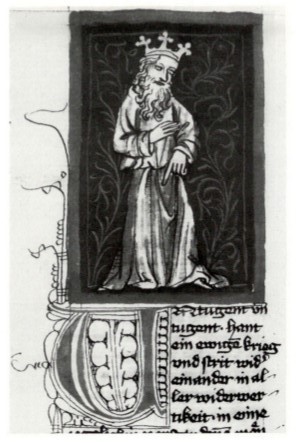 UNtugent vn
tugent · hant
ein ewigē krieg
vnd strit wid'
einander in al
ler widerwer
tikeit · in eine